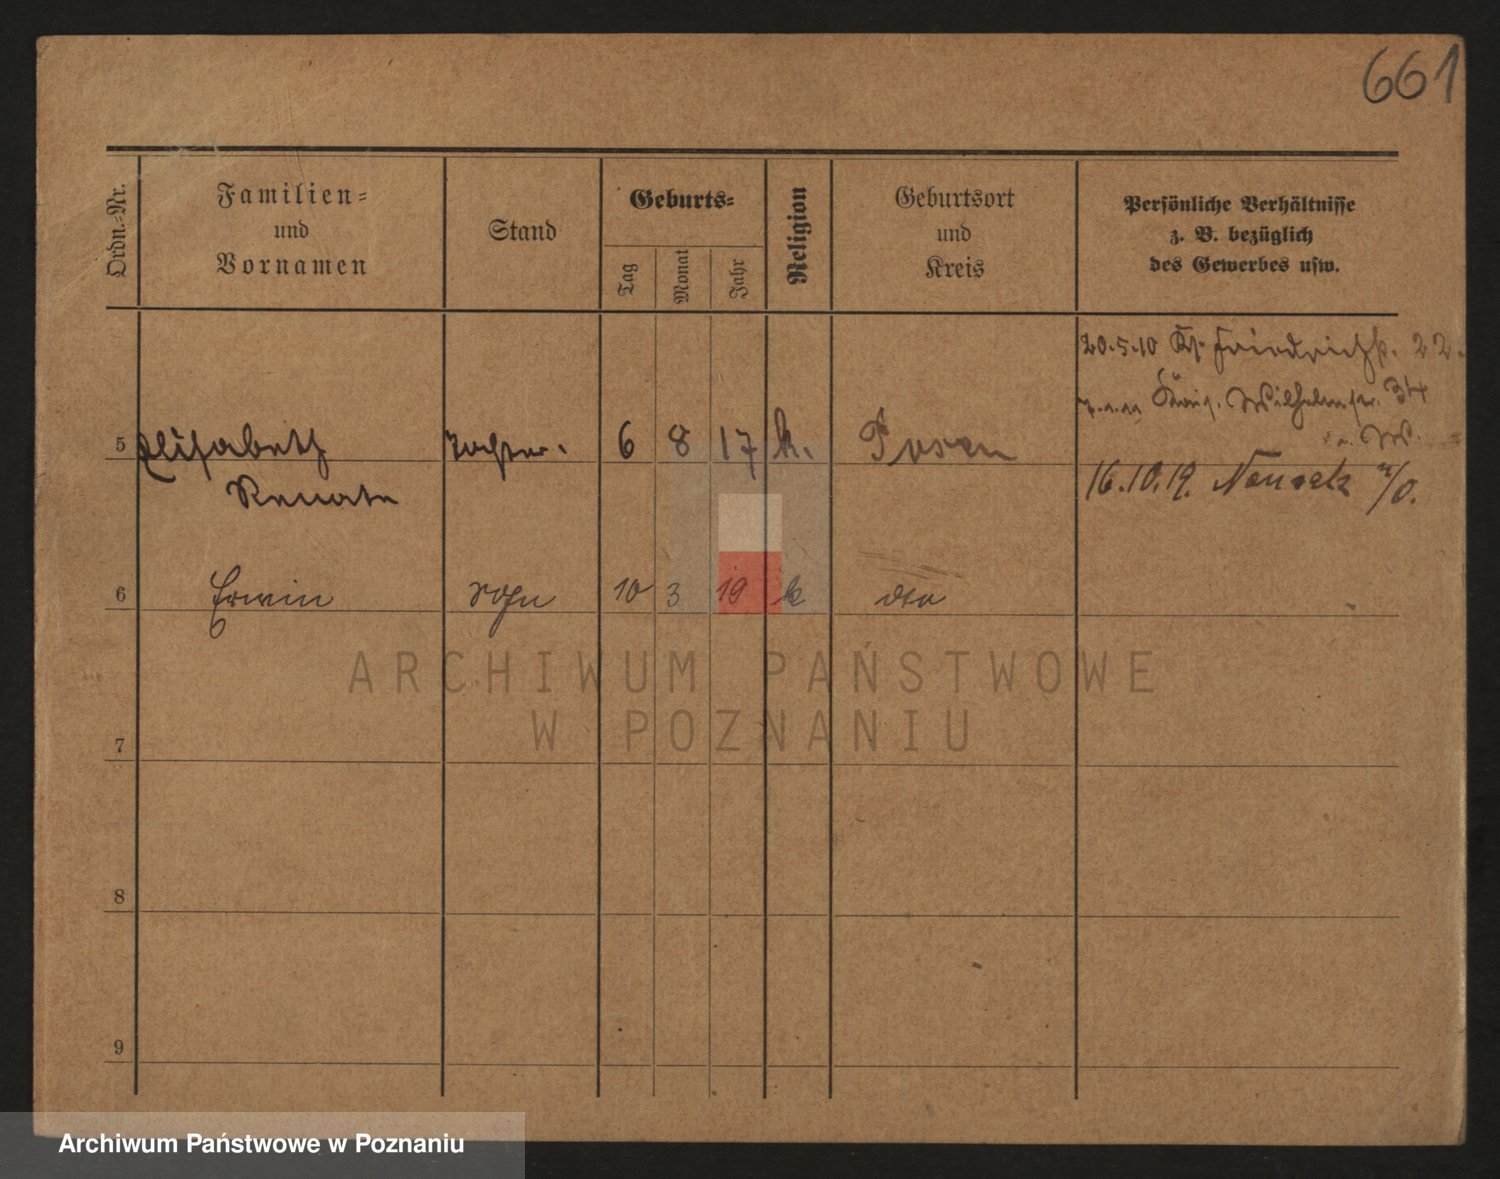 661
Ordn.-Nr.
Familien-
und
Vornamen
Stand
Geburts-
Tag
Monat
Jahr
Religion
Geburtsort
und
Kreis
Persönliche Verhältnisse
z. B. bezüglich
des Gewerbes usw.
20.5.10 Friedrichstr. 22.
Wilhelmstr. 34
5 Elisabeth Tochter. 6 8 17 k. Posen
Renate
16.10.19.
6 Erwin Sohn 10 3 19 k dto
7
8
9
ARCHIWUM PAŃSTWOWE
W POZNANIU
Archiwum Państwowe w Poznaniu